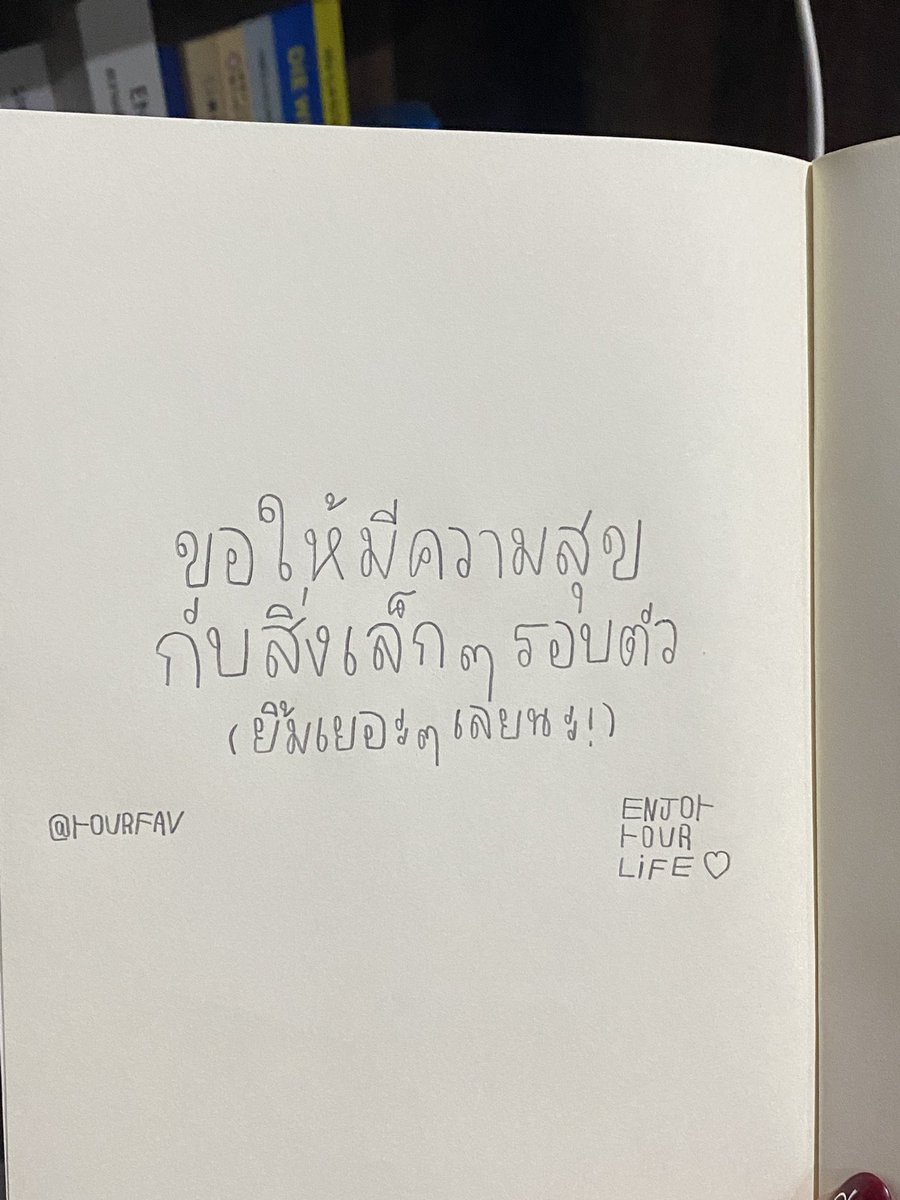 DIE W
ขอให้มีความสุข
กับสิ่งเล็กๆ รอบตัว
(ยิ้มเยอะๆ เลยนะ!)
@YOURFAV
ENJOY
YOUR
LiFE ♡